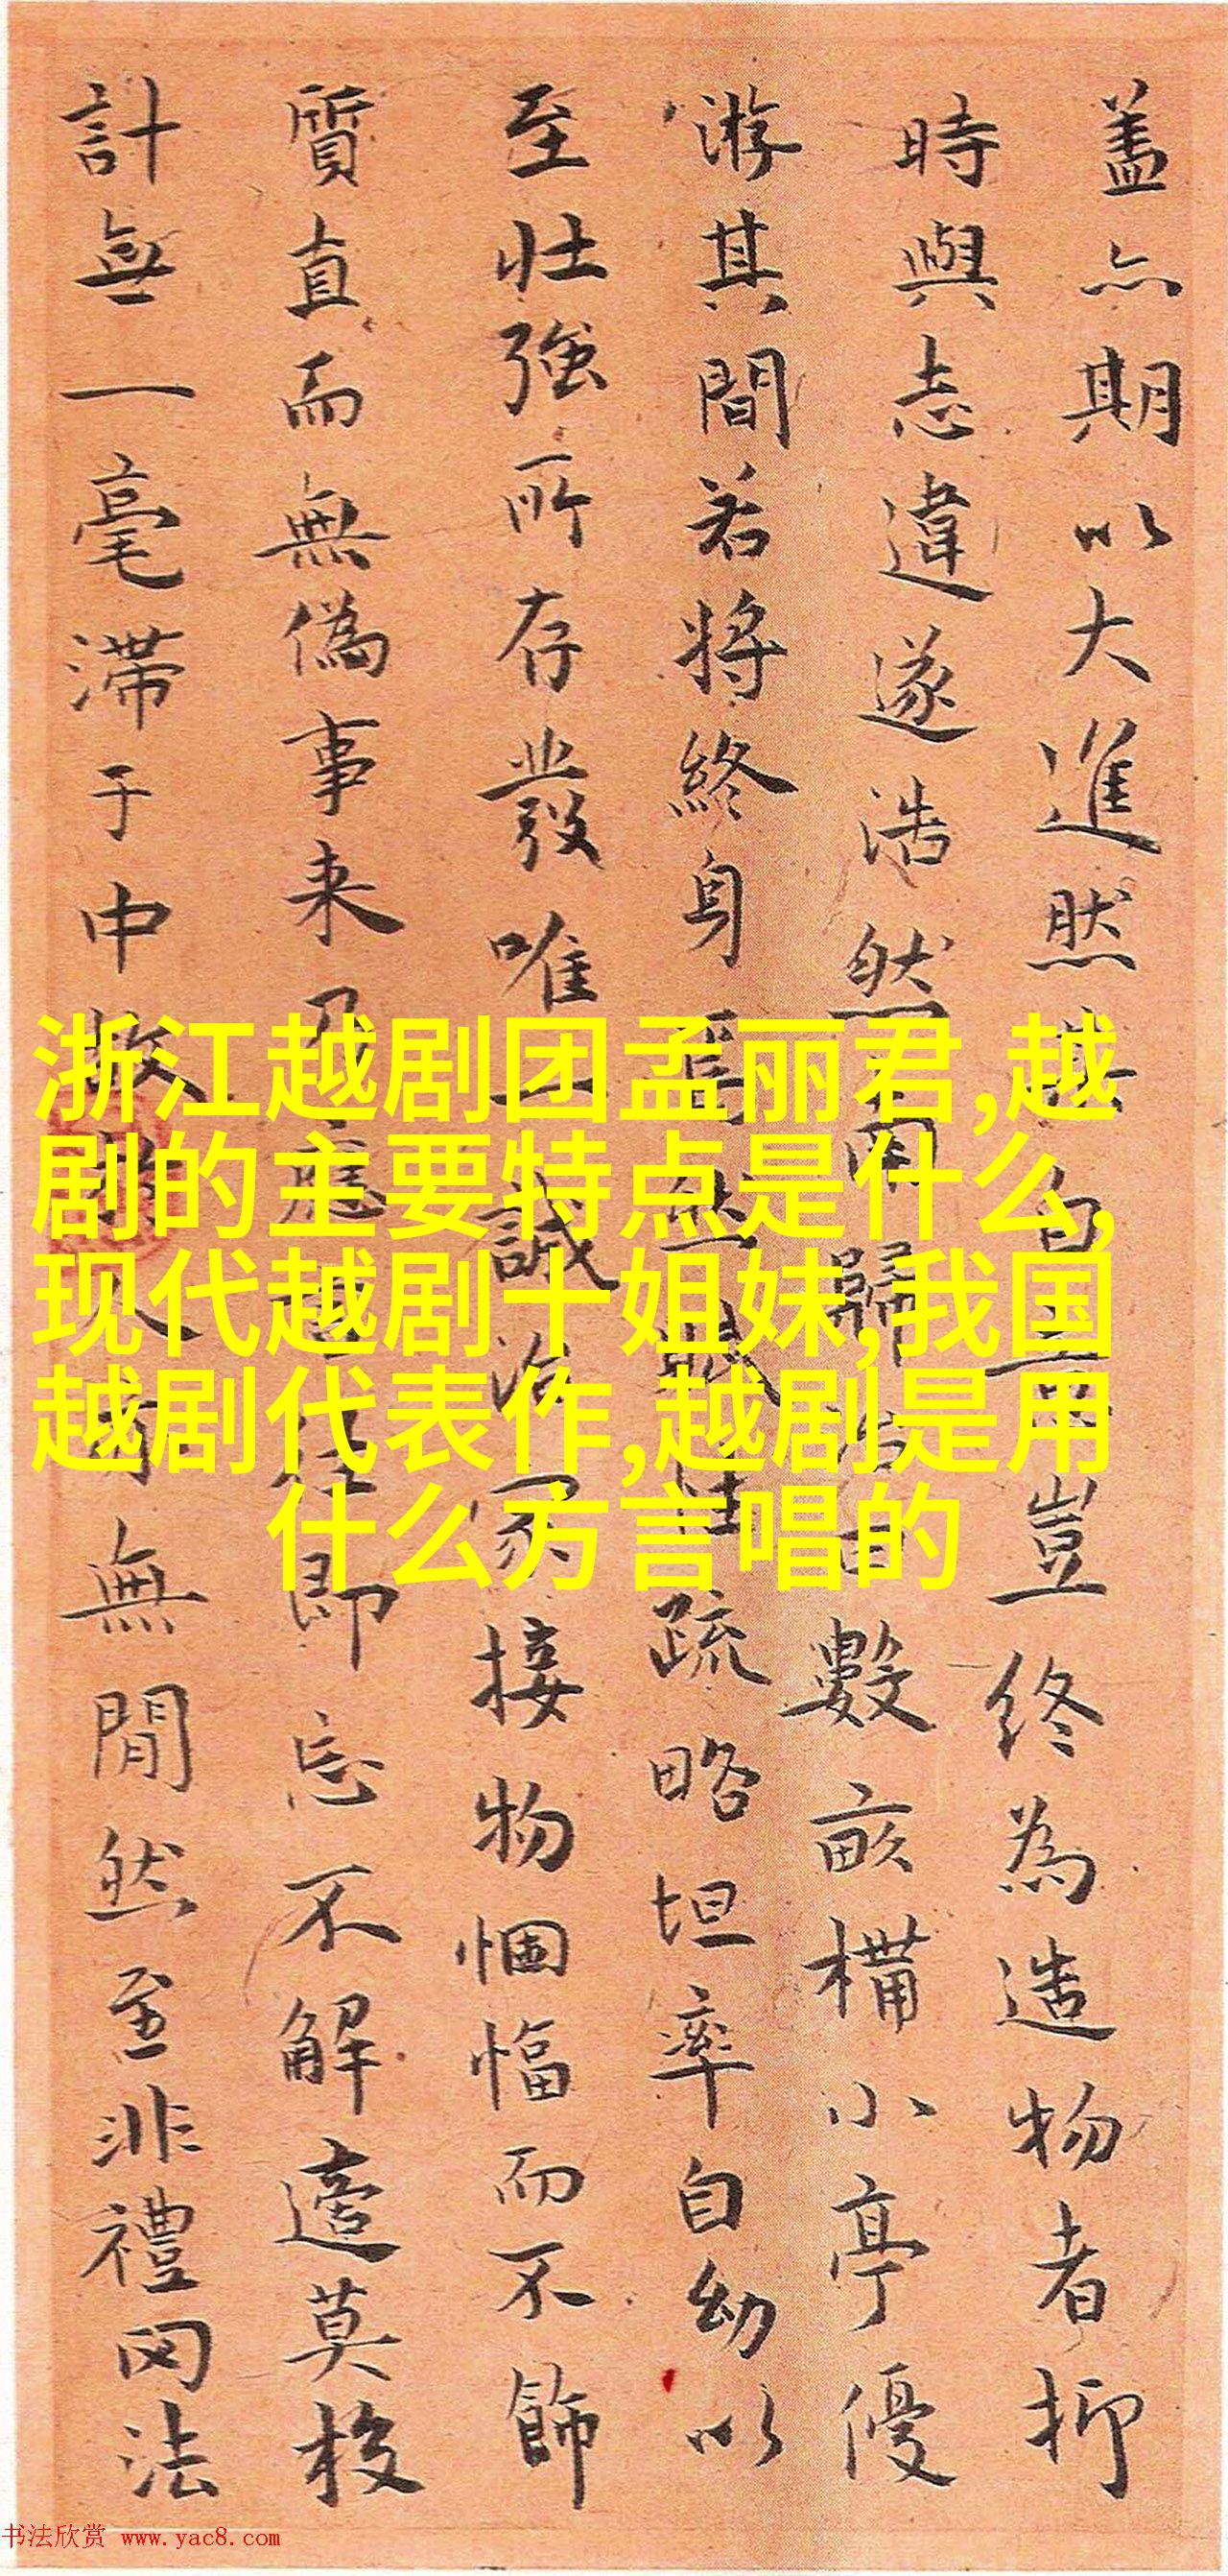 盖亦期以大進然其自立豈终為造物者抑
時與志違遂浩然南歸治田數畝構小亭優
游其間若将終身焉然賦性疏略坦率自幼以
至壮強所存發唯一誠治家接物悃愊而不飾
質直而無僞事来即忘不解邅莫梭
計無一毫滞于中無閒然至非禮罔法
浙江越剧团孟丽君,越
剧的主要特点是什么,
现代越剧十姐妹,我国
越剧代表作,越剧是用
什么方言唱的
书法欣赏 www.yac8.com